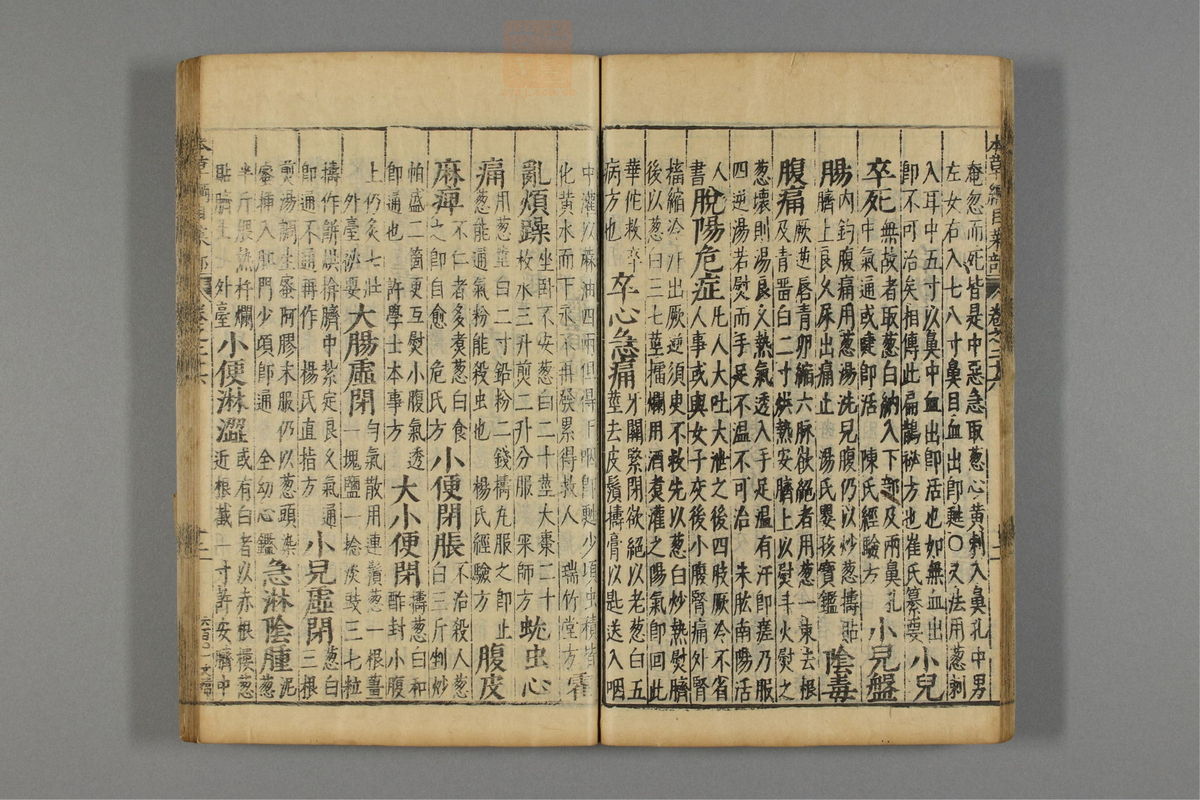 本草綱目菜部 卷之二十六 十二
奄忽而死皆是中惡急取葱心黃刺入鼻孔中男
左女右入七八寸鼻目血出即甦○又法用葱刺
入耳中五寸以鼻中血出即活也如無血出
即不可治矣相傳此扁鵲秘方也崔氏纂要
小兒
卒死
無故者取葱白納入下部及兩鼻孔
中氣通或嚏即活 陳氏經驗方
小兒盤
腸
內釣腹痛用葱湯洗兒腹仍以炒葱搗貼
臍上良久尿出痛止 湯氏嬰孩寶鑑
陰毒
腹痛
厥逆唇青卵縮六脉欲絕者用葱一束去根
及青畱白二寸烘熱安臍上以熨斗火熨之
葱壞則易良久熱氣透入手足温有汗即瘥乃服
四逆湯若熨而手足不温不可治 朱肱南陽活
人書
脫陽危症
凡人大吐大泄之後四肢厥冷不省
人事或與女子交後小腹腎痛外腎
搐縮冷汗出厥逆須臾不救先以葱白炒熱熨臍
後以葱白三七莖擂爛用酒煮灌之陽氣即回此
華佗救卒
病方也
卒心急痛
牙關緊閉欲絕以老葱白五
莖去皮鬚搗膏以匙送入咽
中灌以蔴油四兩但得下咽即甦少頃虫積皆
化黃水而下永不再發累得救人 瑞竹堂方
霍
亂煩躁
坐卧不安葱白二十莖大棗二十
枚水三升煎二升分服 梁師方
蚘虫心
痛
用葱莖白二寸鉛粉二錢搗丸服之即止
葱能通氣粉能殺虫也 楊氏經驗方
腹皮
麻痺
不仁者多煑葱白食
之即自愈 危氏方
小便閉脹
不治殺人葱
白三斤剉炒
帕盛二箇更互熨小腹氣透
即通也 許學士本事方
大小便閉
搗葱白和
酢封小腹
上仍灸七壯
外臺秘要
大腸虛閉
匀氣散用連鬚葱一根薑
一塊鹽一捻淡豉三七粒
搗作餅烘掩臍中紮定良久氣通
即通不通再作 楊氏直指方
小兒虛閉
葱白
三根
煎湯調生蜜阿膠末服仍以葱頭染
蜜插入肛門少頃即通 全幼心鑑
急淋陰腫
泥
葱
半斤煨熱杵爛
貼臍上 外臺
小便淋澀
或有白者以赤根樓葱
近根截一寸許安臍中
本草綱目菜部 卷之二十六 十二